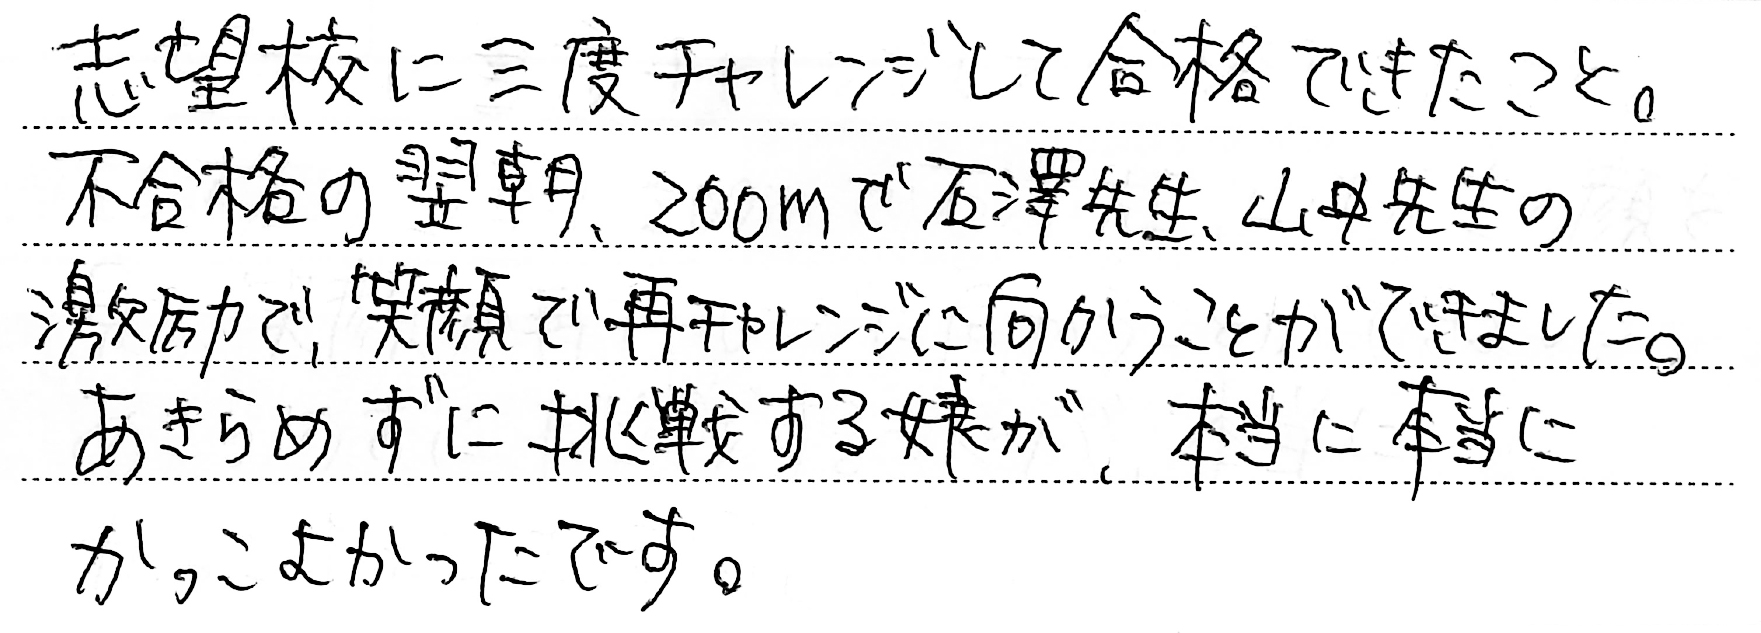 志望校に三度チャレンジして合格できたこと。
不合格の翌朝、200mで石澤先生、山中先生の
激励で、笑顔で再チャレンジに向かうことができました。
あきらめずに挑戦する娘が、本当に本当に
かっこよかったです。